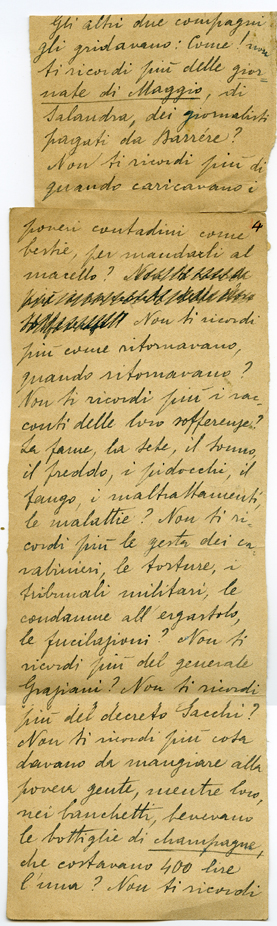 Gli altri due compagni
gli gridavano: Come! non
ti ricordi più delle gior-
nate di Maggio, di
Salandra, dei giornalisti
pagati da Barrére?
Non ti ricordi più di
quando caricavano i
4
poveri contadini come
bestie, per mandarli al
macello?
Non ti ricordi
più come ritornavano,
quando ritornavano?
Non ti ricordi più i rac-
conti delle loro sofferenze?
La fame, la sete, il sonno,
il freddo, i pidocchi, il
fango, i maltrattamenti,
le malattie? Non ti ri-
cordi più le gesta dei ca-
rabinieri, le torture, i
tribunali militari, le
condanne all'ergastolo,
le fucilazioni? Non ti
ricordi più del generale
Graziani? Non ti ricordi
più del decreto Sacchi?
Non ti ricordi più cosa
davano da mangiare alla
povera gente, mentre loro,
nei banchetti, bevevano
le bottiglie di champagne,
che costavano 400 lire
l'una? Non ti ricordi